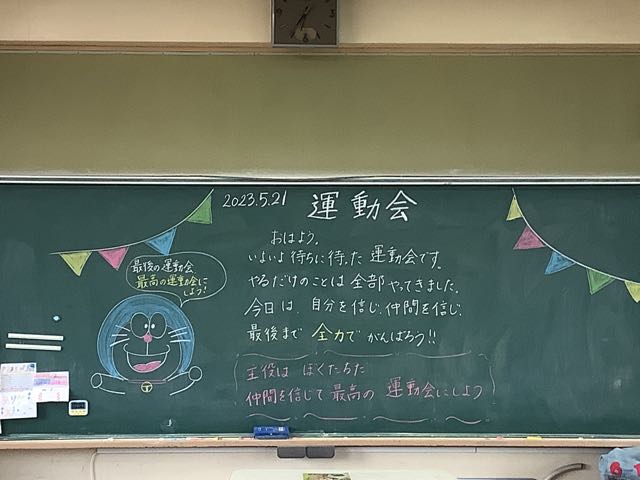 2023.5.21 運動会
おはよう。
いよいよ待ちに待った運動会です。
やるだけのことは全部やってきました。
今日は、自分を信じ、仲間を信じ、
最後まで全力でがんばろう!!
主役はぼくたちだ
仲間を信じて最高の運動会にしよう
最後の運動会
最高の運動会に
しよう!